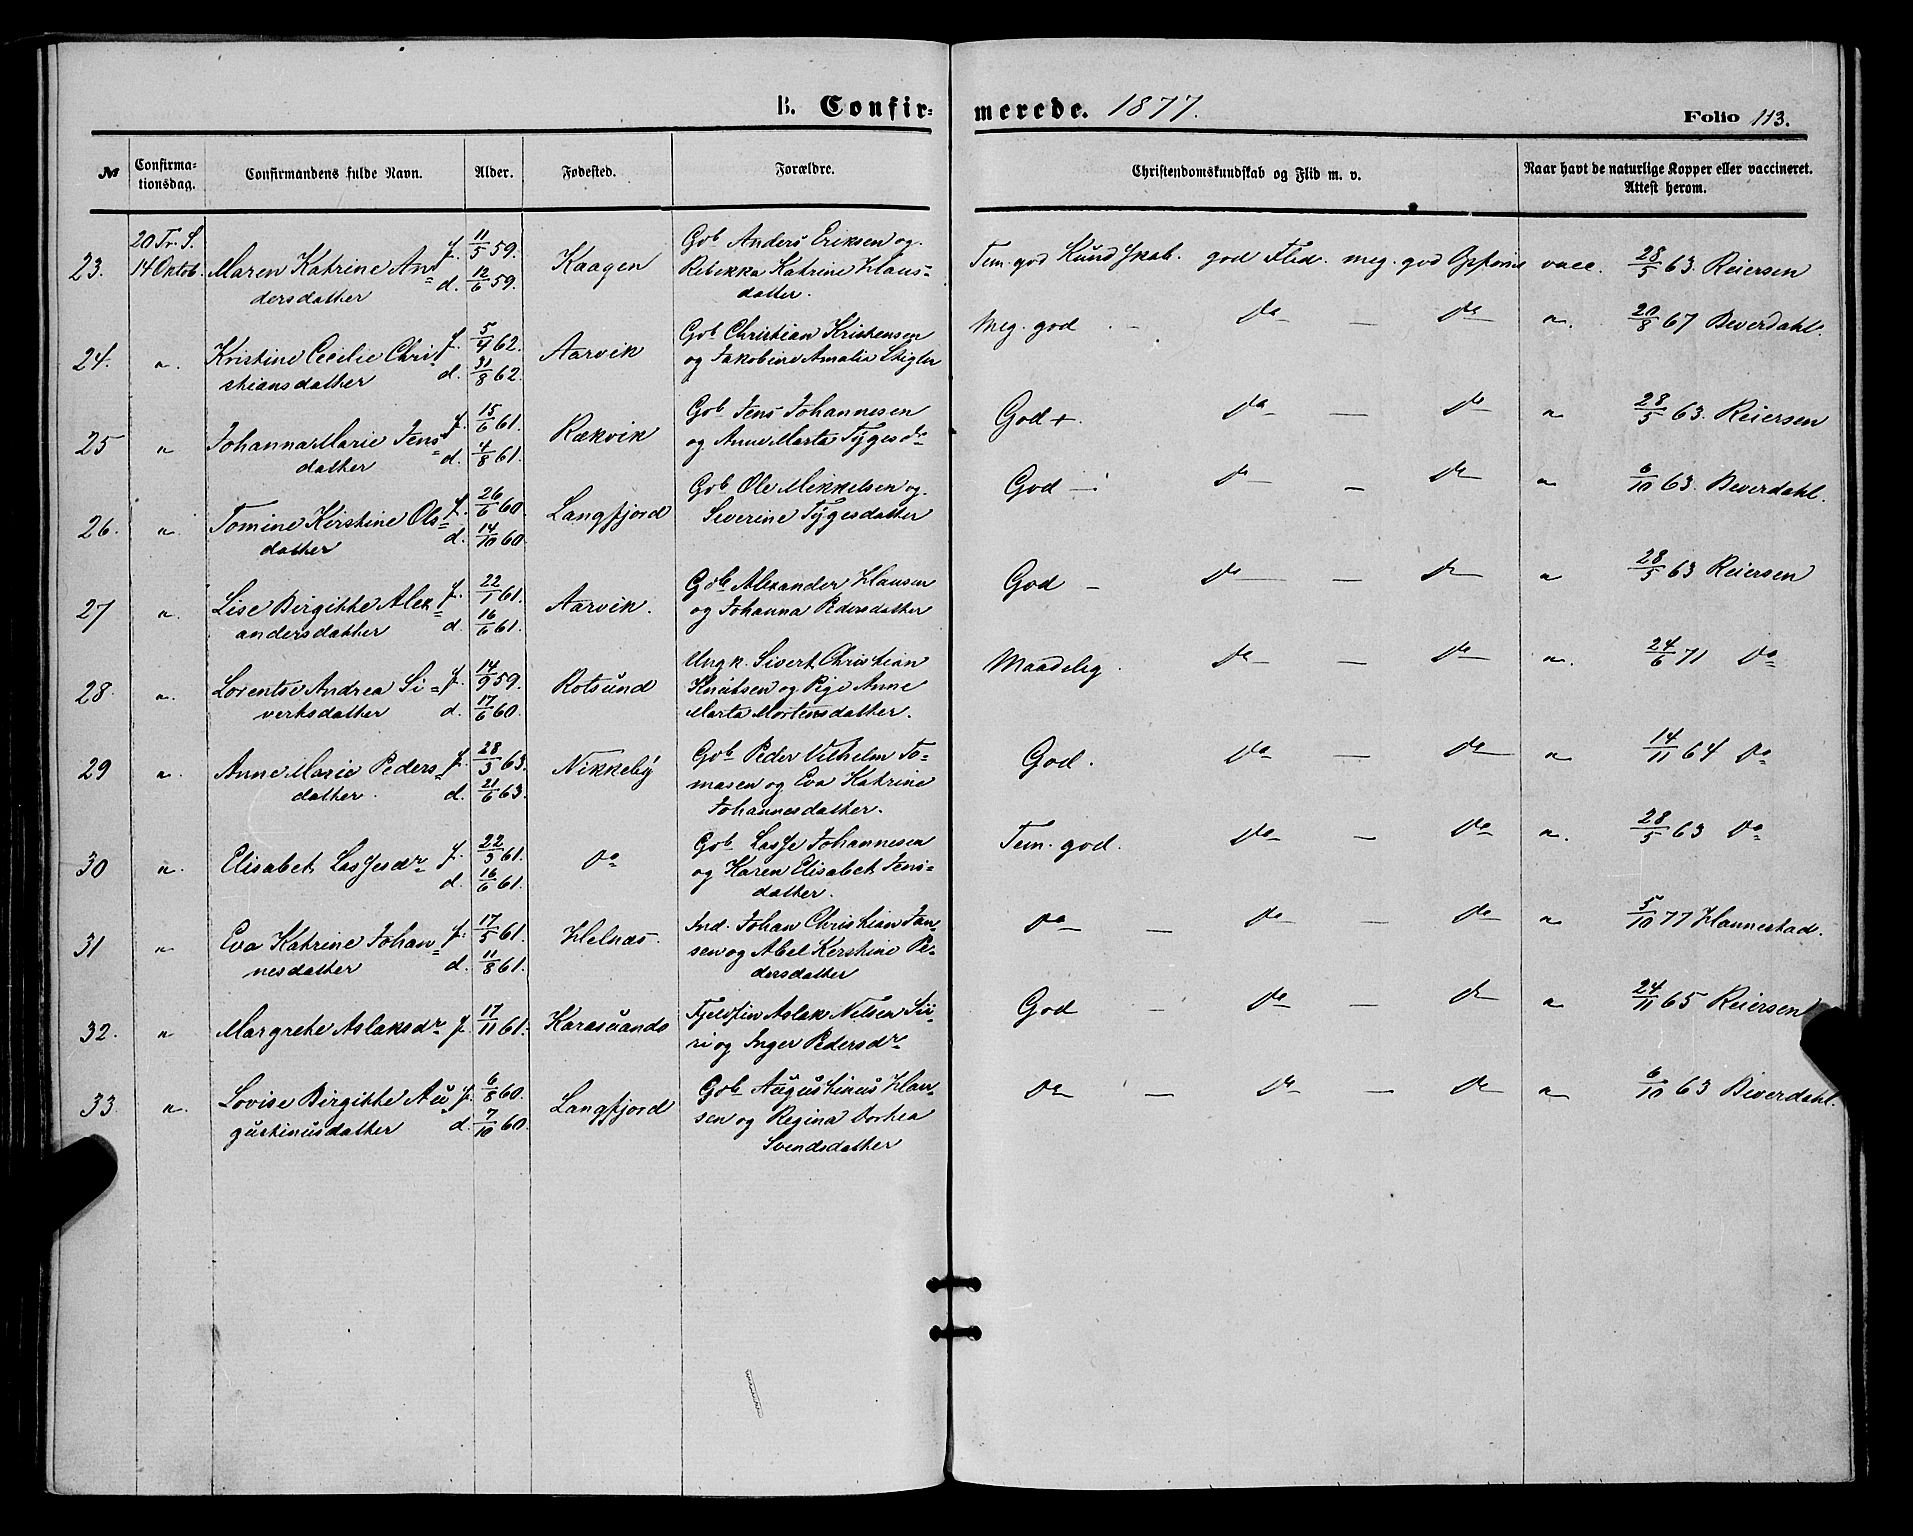 B. Confir=
merede. 1877.
Folio 113.
№
Confirma-
tionsdag.
Confirmandens fulde Navn.
Alder.
Fødested.
Forældre.
Christendomskundskab og Flid m. v.
Naar havt de naturlige Kopper eller vaccineret.
Attest herom.
23. 20 Tr. S. 14 Octob. Maren Katrine An=
dersdatter
f. 11/5 59.
d. 12/6 59.
Kaagen
Gb Anders Eriksen og
Rebekka Katrine Hans=
datter.
Tem. god Kundskab. god Flid. meg. god Opførsel vacc. 28/5 63. Reiersen
24. " Kristine Cecilie Chri=
stiansdatter
f. 5/4 62.
d. 31/8 62.
Aarvik
Gb Christian Kristensen
og Jakobine Amalia Stigler
Meg. god. – do — do " 20/8 67 Beverdahl.
25 " Johanna Marie Jens=
datter
f. 15/6 61.
d. 4/8 61.
Rækvik
Gb Jens Johannesen
og Anne Marta Tygesdr
God +. do — do " 28/5 63. Reiersen
26. " Tomine Kirstine Ols=
datter
f. 26/6 60.
d. 14/10 60.
Langfjord
Gb Ole Mikkelsen og
Siverine Tygesdatter
God — do — do " 6/10 63. Beverdahl.
27 " Lise Birgitte Alex=
andersdatter
f. 22/1 61.
d. 16/6 61.
Aarvik.
Gb Alexander Hansen
og Johanna Pedersdatter
God – do — do " 28/5 63 Reiersen
28. " Lorentse Andrea Si=
vertsdatter
f. 14/9 59.
d. 17/6 60.
Rotsund
Ungk. Sivert Christian
Knutsen og Pige Anne
Marta Mortensdatter.
Maadelig. do — do ". 24/6 71 do
29 " Anne Marie Peders=
datter.
f. 28/3 63.
d. 21/6 63.
Nikkeby
Gb Peder Vilhelm To=
masen og Eva Katrine
Johannesdatter.
God. do — do " 14/11 64 do
30 " Elisabet Lassesdr
f. 22/3 61.
d. 16/6 61.
do
Gb Lasse Johannesen
og Karen Elisabet Jens=
datter.
Tem. god. do — do ". 28/5 63 do
31 " Eva Katrine Johan=
nesdatter
f. 17/5 61.
d. 11/8 61.
Helnæs.
Ind. Johan Christian Jan=
sen og Abel Kerstine Pe=
dersdatter
do — do — do " 5/10 77 Hannestad.
32. " Margrethe Aslaksdr f. 17/11 61. Karasuando
Fjeldfin Aslak Nilsen Sir=
ri og Inger Pedersdr
God – do — do " 24/11 65 Reiersen
33 " Lovise Birgitte Au=
gustinusdatter
f. 6/8 60.
d. 7/10 60.
Langfjord
Gb Augustinus Han=
sen og Regina Dorthea
Svendsdatter
do — do — do " 6/10 63 Beverdahl.